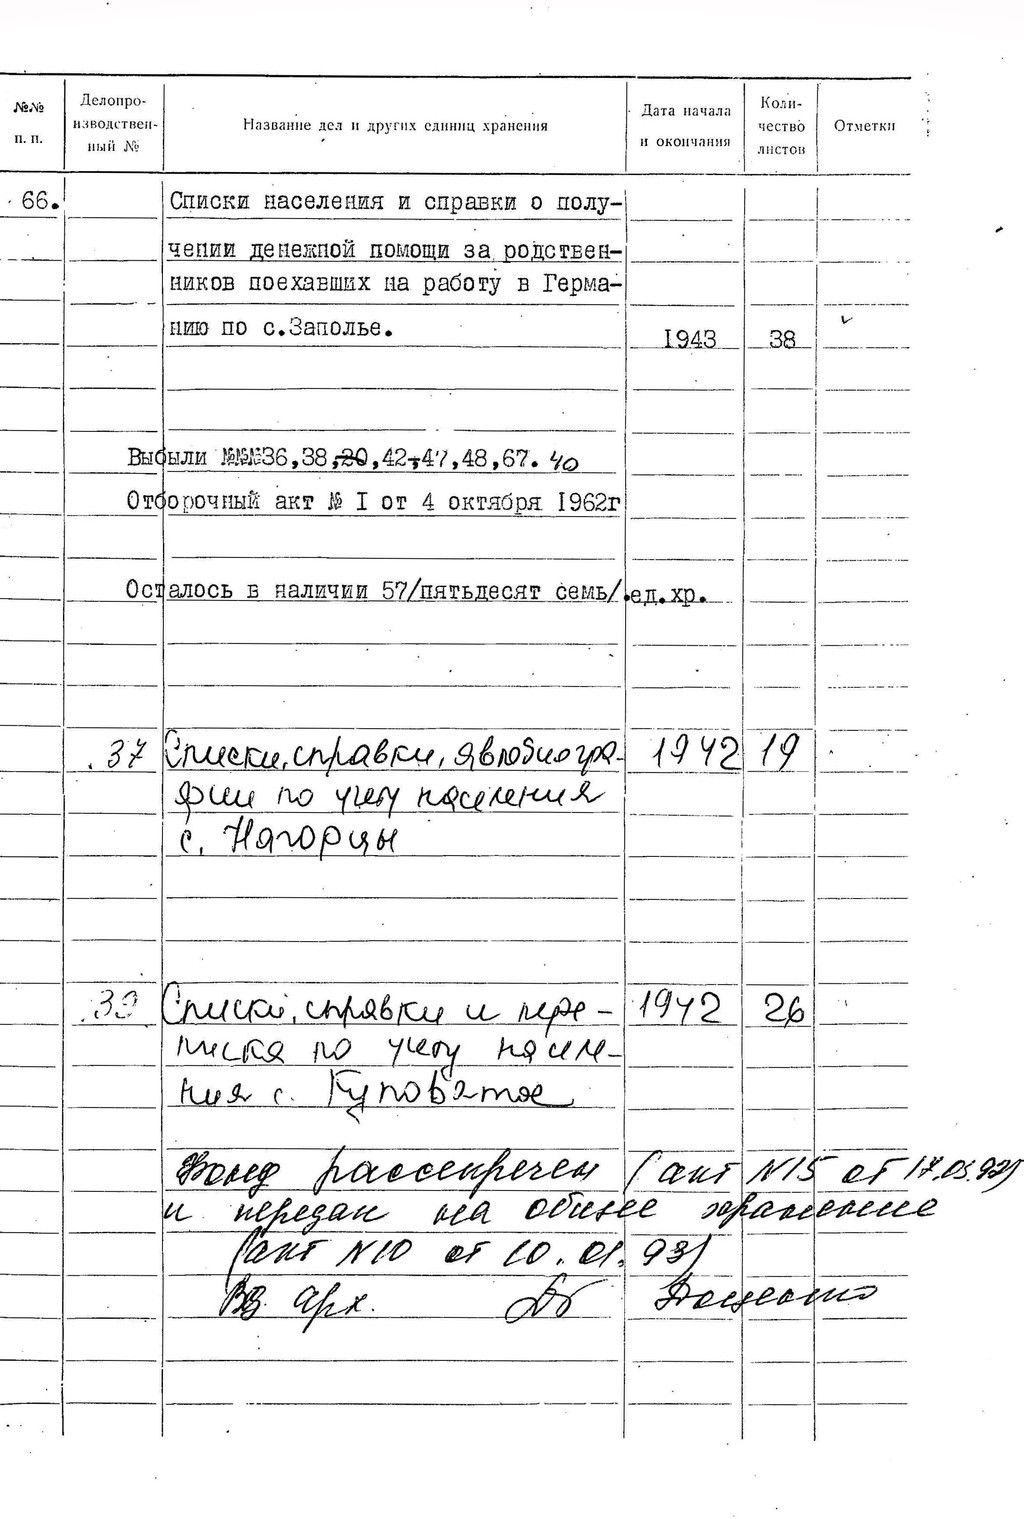 №№ п. п.
Делопро-
изводствен-
ный №
Название дел и других единиц хранения
Дата начала
и окончания
Коли-
чество
листов
Отметки
66. Списки населения и справки о полу-
чении денежной помощи за родствен-
ников поехавших на работу в Герма-
нию по с.Заполье. 1943 38
Выбыли №№№36,38,20,42,47,48,67. 40
Отборочный акт № I от 4 октября 1962г
Осталось в наличии 57/пятьдесят семь/.ед.хр.
37 Списки, справки, автобиогра- 1942 19
фии по учету населения
с. Нагорцы
39 Списки, справки и пере- 1942 26
писка по учету населе-
ния с. Куповатое
Фонд рассекречен (акт N15 от 17.03.92)
и передан на общее хранение
(акт N10 от 10.01.93)
арх.